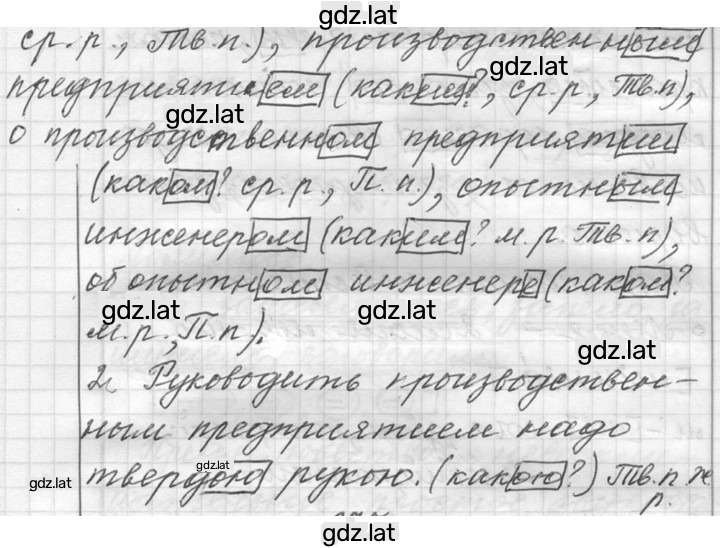 gdz.lat
ср.р., Тв.п.), производственным
gdz.lat
предприятием (каким?, ср.р., Тв.п),
gdz.lat
о производственном предприятии
(каком? ср.р., П.п.), опытным
инженером (каким? м.р. Тв.п),
об опытном инженере (каком?
gdz.lat gdz.lat
м.р., П.п).
gdz.lat
2. Руководить производствен-
ным предприятием надо
gdz.lat
твердою рукою. (какою?) Тв.п ж
gdz.lat
р.
gdz.lat